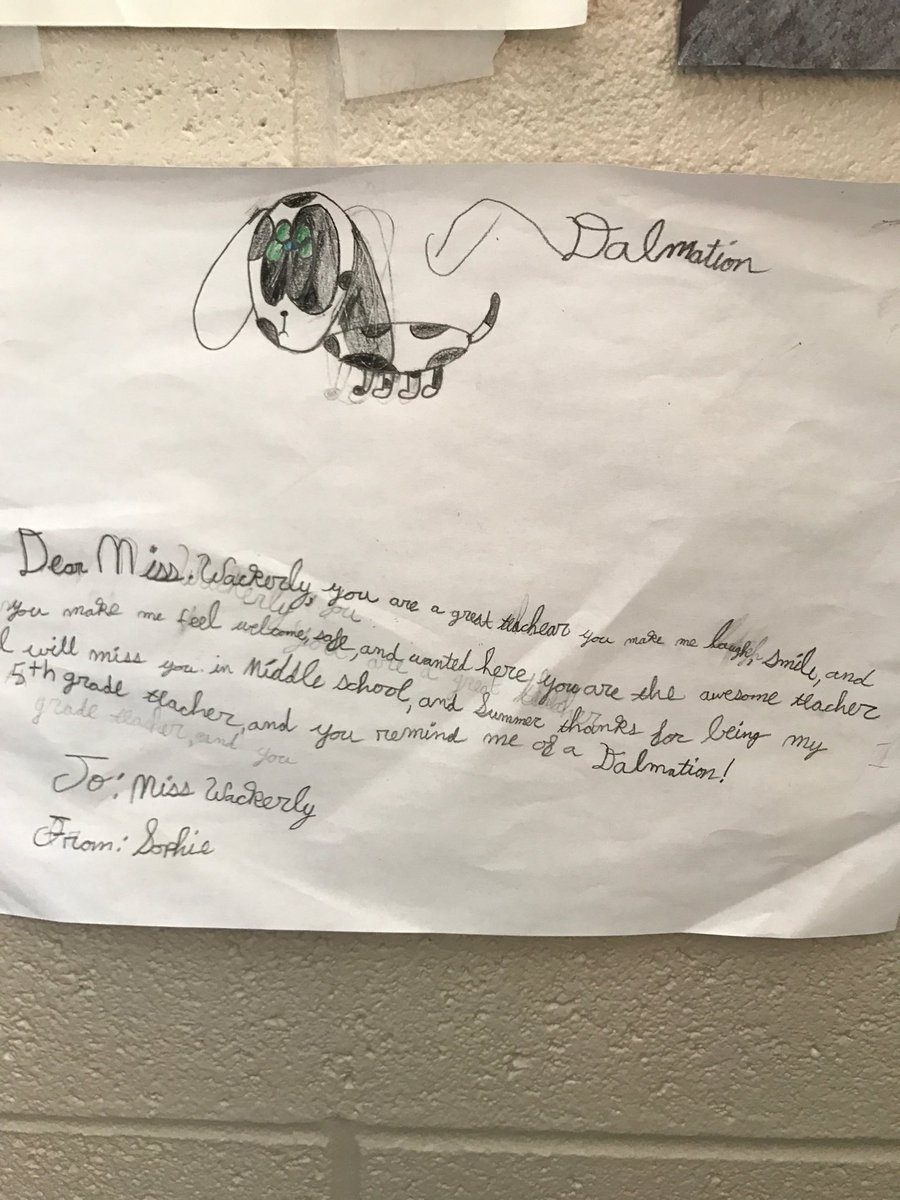 Dalmation
Dear Miss. Wackerly, you are a great teachear you make me laugh, smile, and
you make me feel welcome, safe, and wanted here, you are the awesome teacher
I will miss you in Middle school, and Summer thanks for being my
5th grade teacher, and you remind me of a Dalmation!
grade teacher, and you
To: Miss Wackerly
From: Sophie